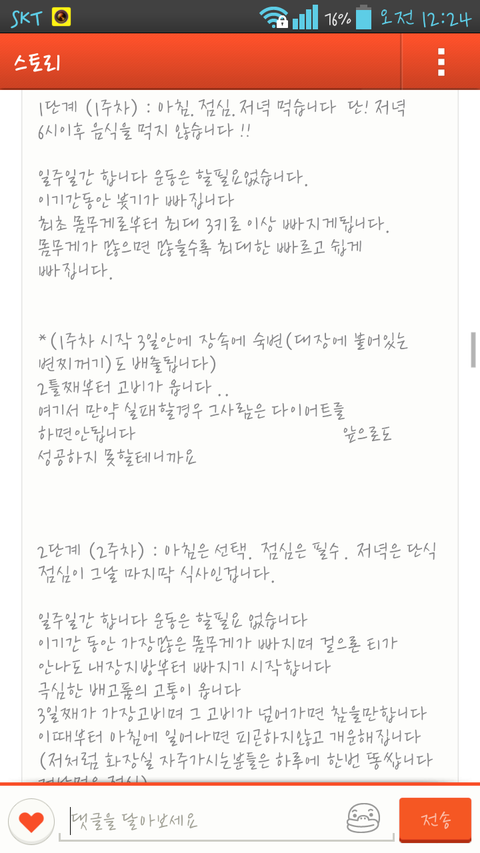 SKT 76% 오전 12:24
스토리
1단계 (1주차) : 아침. 점심. 저녁 먹습니다 단! 저녁
6시이후 음식을 먹지 않습니다 !!
일주일간 합니다 운동은 할필요없습니다.
이기간동안 붓기가 빠집니다
최초 몸무게로부터 최대 3키로 이상 빠지게됩니다.
몸무게가 많으면 많을수록 최대한 빠르고 쉽게
빠집니다.
*(1주차 시작 3일안에 장속에 숙변(대장에 붙어있는
변찌꺼기)도 배출됩니다)
2틀째부터 고비가 옵니다 ..
여기서 만약 실패할경우 그사람은 다이어트를
하면안됩니다 앞으로도
성공하지 못할테니까요
2단계 (2주차) : 아침은 선택. 점심은 필수. 저녁은 단식
점심이 그날 마지막 식사인겁니다.
일주일간 합니다 운동은 할필요 없습니다
이기간 동안 가장많은 몸무게가 빠지며 겉으론 티가
안나도 내장지방부터 빠지기 시작합니다
극심한 배고픔의 고통이 옵니다
3일째가 가장고비며 그 고비가 넘어가면 참을만합니다
이때부터 아침에 일어나면 피곤하지않고 개운해집니다
(저처럼 화장실 자주가시는분들은 하루에 한번 똥쌉니다
댓글을 달아보세요 전송